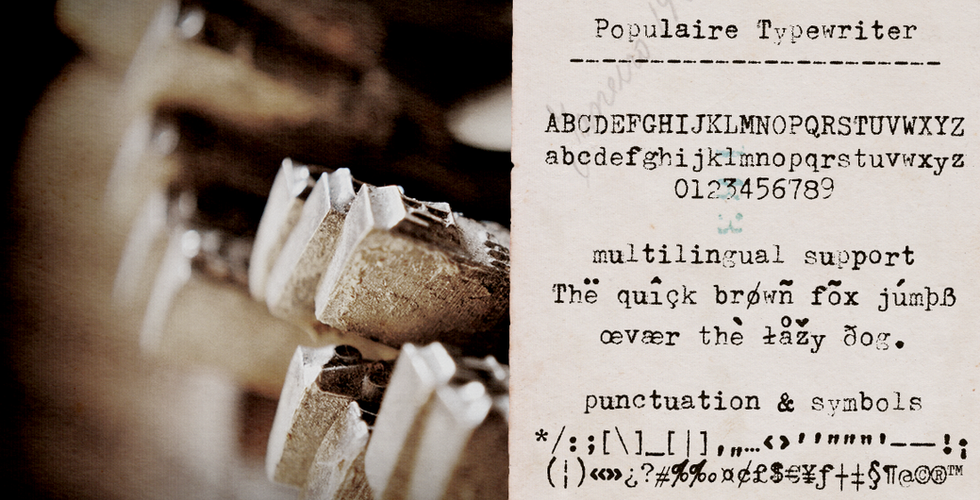 Populaire Typewriter
ABCDEFGHIJKLMNOPQRSTUVWXYZ
abcdefghijklmnopqrstuvwxyz
0123456789
multilingual support
Thë quîçk brøwñ fõx júmþß
œvær thè łåžy ðog.
punctuation & symbols
*/:;[\]_[|],„…‹›''"""'–—!¡
(¦)«»¿?#%‰¤¢£$€¥ƒ†‡§¶@©®™